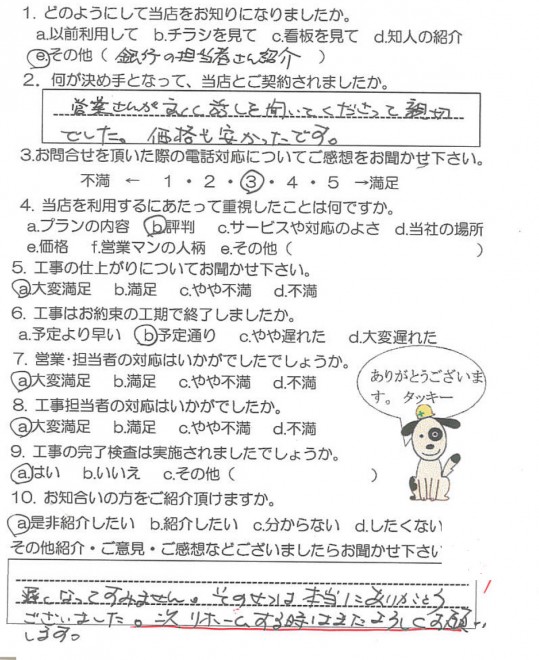 1. どのようにして当店をお知りになりましたか。
a.以前利用して b.チラシを見て c.看板を見て d.知人の紹介
e.その他（ 銀行の担当者さん紹介 ）
2. 何が決め手となって、当店とご契約されましたか。
営業さんがよく話しを聞いてくださって親切
でした。価格も安かったです。
3.お問合せを頂いた際の電話対応についてご感想をお聞かせ下さい。
不満 ← 1・2・3・4・5 →満足
4. 当店を利用するにあたって重視したことは何ですか。
a.プランの内容 b.評判 c.サービスや対応のよさ d.当社の場所
e.価格 f.営業マンの人柄 e.その他（ ）
5. 工事の仕上がりについてお聞かせ下さい。
a.大変満足 b.満足 c.やや不満 d.不満
6. 工事はお約束の工期で終了しましたか。
a.予定より早い b.予定通り c.やや遅れた d.大変遅れた
7. 営業・担当者の対応はいかがでしたでしょうか。
a.大変満足 b.満足 c.やや不満 d.不満
ありがとうございま
す。 タッキー
8. 工事担当者の対応はいかがでしたか。
a.大変満足 b.満足 c.やや不満 d.不満
9. 工事の完了検査は実施されましたでしょうか。
a.はい b.いいえ c.その他（ ）
10. お知合いの方をご紹介頂けますか。
a.是非紹介したい b.紹介したい c.分からない d.したくない
その他紹介・ご意見・ご感想などございましたらお聞かせ下さい
遅くなってすみません。その せつは 本当にありがとう
ございました。次リホームする時はまたよろしくお願い
します。